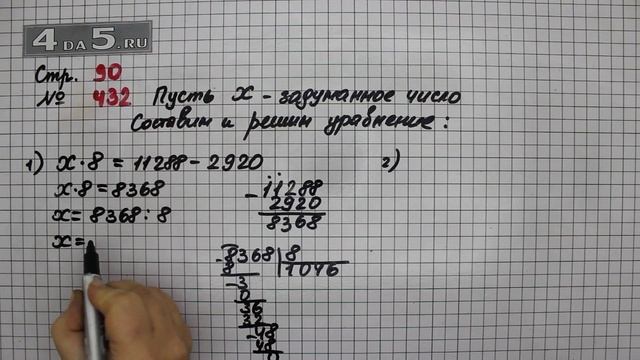 4DA5.RU
Стр. 90
№ 432 Пусть х - задуманное число
Составим и решим уравнение:
1) х·8 = 11288 - 2920
х·8 = 8368
х = 8368 : 8
х =
2)
- 11288
2920
8368
- 8368 | 8
8 1046
- 3
0
36
32
- 48
48
0